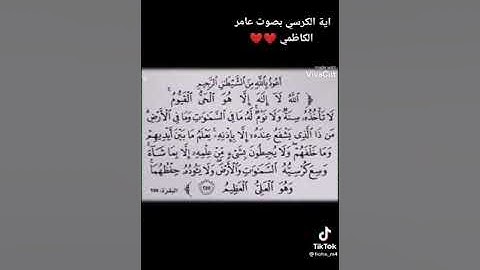 اية الكرسي بصوت عامر
الكاظمي ❤️❤️
made with
VivaCut
أَعُوذُ بِاللَّهِ مِنَ الشَّيْطَانِ الرَّجِيمِ
﴿ ٱللَّهُ لَآ إِلَٰهَ إِلَّا هُوَ ٱلْحَىُّ ٱلْقَيُّومُ ۚ
لَا تَأْخُذُهُۥ سِنَةٌ وَلَا نَوْمٌ ۚ لَّهُۥ مَا فِى ٱلسَّمَٰوَٰتِ وَمَا فِى ٱلْأَرْضِ ۗ
مَن ذَا ٱلَّذِى يَشْفَعُ عِندَهُۥٓ إِلَّا بِإِذْنِهِۦ ۚ يَعْلَمُ مَا بَيْنَ أَيْدِيهِمْ
وَمَا خَلْفَهُمْ ۖ وَلَا يُحِيطُونَ بِشَىْءٍ مِّنْ عِلْمِهِۦٓ إِلَّا بِمَا شَآءَ ۚ
وَسِعَ كُرْسِيُّهُ ٱلسَّمَٰوَٰتِ وَٱلْأَرْضَ ۖ وَلَا يَـُٔودُهُۥ حِفْظُهُمَا ۚ
وَهُوَ ٱلْعَلِىُّ ٱلْعَظِيمُ ﴿٢٥٥﴾ البقرة: ٢٥٥
TikTok